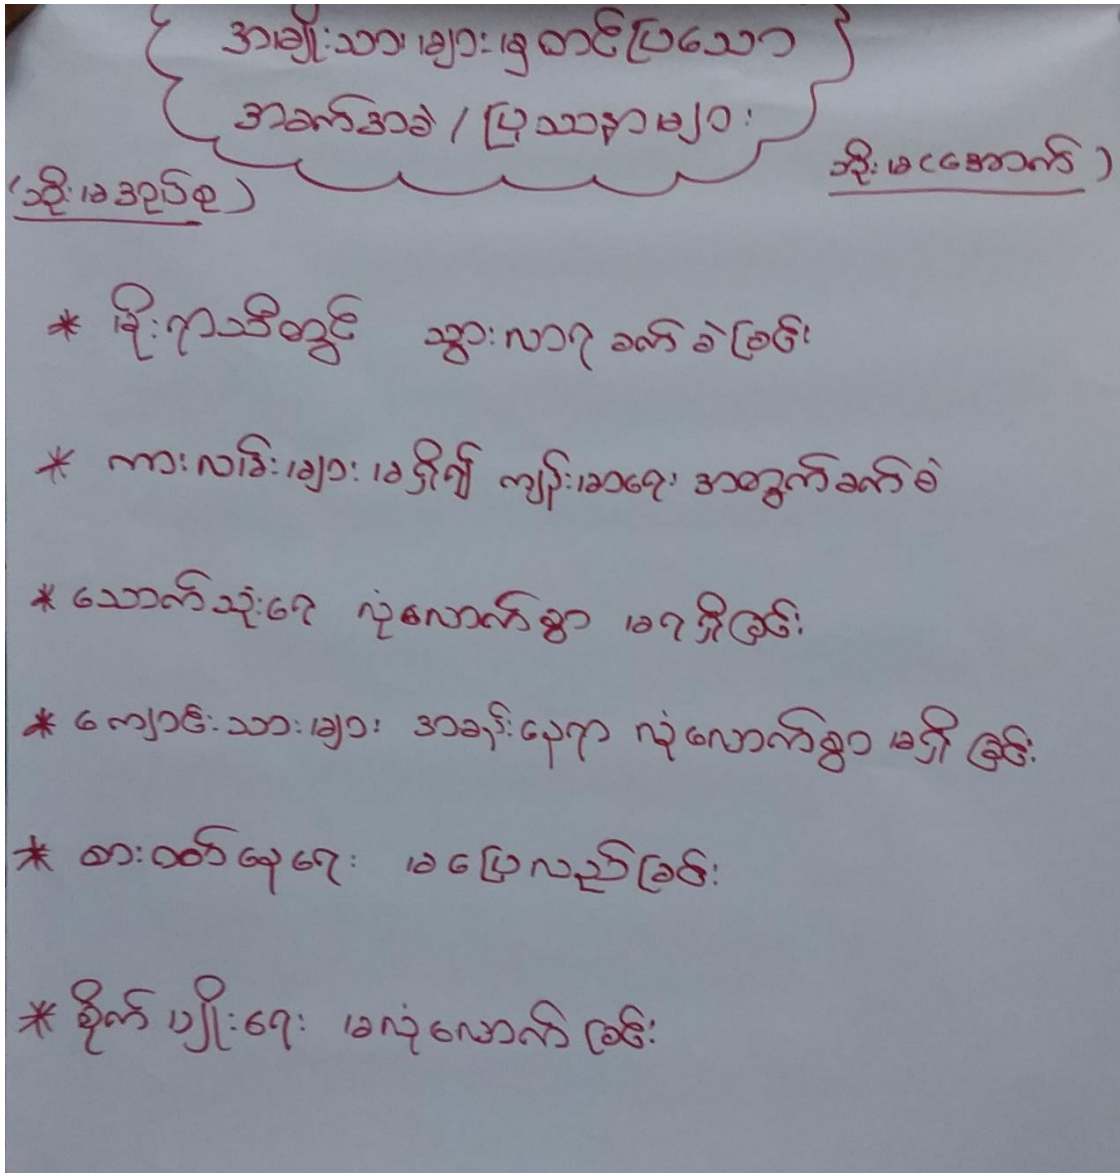 အမျိုးသားများမှတင်ပြသော
အခက်အခဲ / ပြဿနာများ
(သိုးမအုပ်စု)
သိုးမ(အောက်)
* မိုးရာသီတွင် သွားလာရခက်ခဲခြင်း
* ကားလမ်းများမရှိ၍ ကျန်းမာရေးအတွက်ခက်ခဲ
* သောက်သုံးရေ လုံလောက်စွာ မရရှိခြင်း
* ကျောင်းသားများ အခန်းနေရာ လုံလောက်စွာ မရှိခြင်း
* စားဝတ်နေရေး မပြေလည်ခြင်း
* စိုက်ပျိုးရေး မလုံလောက်ခြင်း